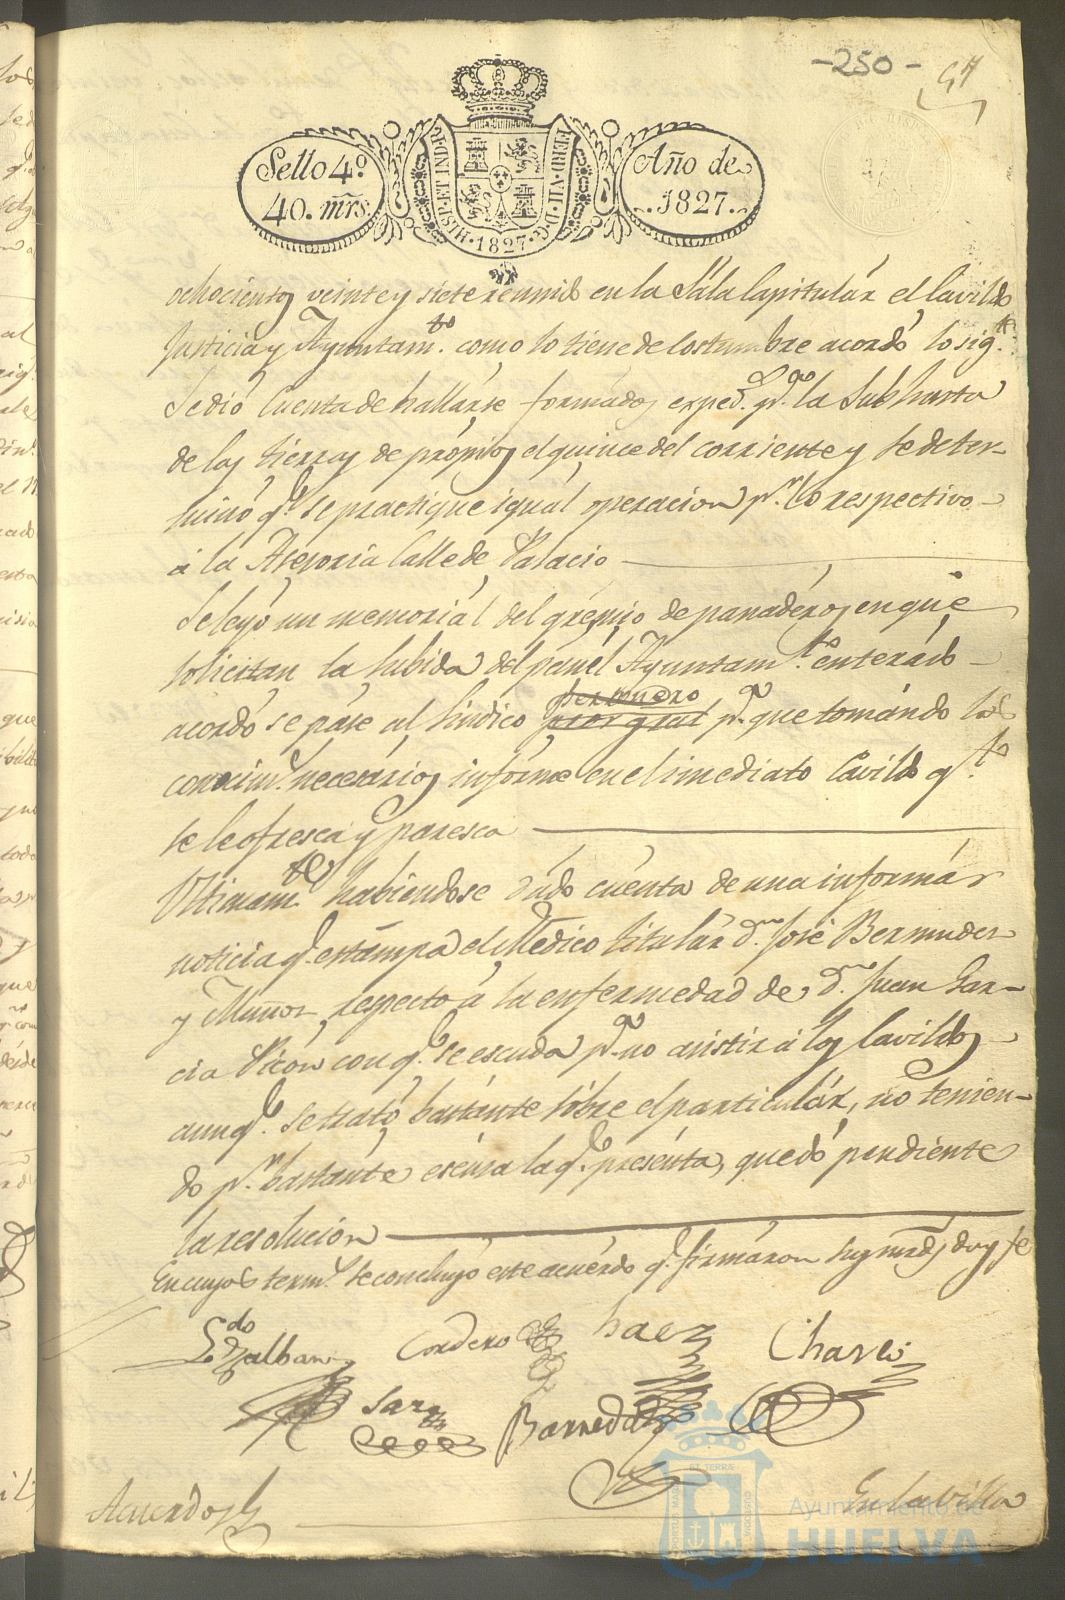 -250-
Sello 4º
40. mrs.
HISP. ET IND. R.
FERD. VII. D. G.
· 1827 ·
Año de
1827.
ochocientos veinte y siete reunido en la Sala Capitulár el Cavildo
Justicia y Ayuntamto. como lo tiene de costumbre acordó lo sigte.
Se dió Cuenta de hallarse formados, exped. pª. la Subhasta
de las tierras de propios el quince del corriente y se deter-
minó qe. se practique igual operacion pr. lo respectivo
á la Asesoria Calle de Palacio
Se leyó un memorial del grémio de panadéros, en que
solicitan la subida del pan él Ayuntamto. enterádo
acordó se páse al Sindico personero pª. que tomándo los
conocimtos. necesários informe en el imediato Cavildo qto.
se le ofresca y paresca
Ultimamte. habiendose dádo cuénta de una informár
noticia qe. estámpa el Médico titulár dn. José Bermudez
y Muñoz respecto á la enfermedad de dn. Juan Gar-
cia Picon con qe. se escuda pª. no asistir á los Cavildos,
aunqe. se trató bastánte sóbre el particulár, no tenien-
do pr. bastante escúsa la qe. presénta, quedó pendiente
la resolución
En cuyos termos. se concluyó este acuérdo qe. firmáron sus mrds. doy fe
Ldo. Zalbán
Cordero
Saez
Charis
Sarz
Barreda
Acuerdos
En la villa
Ayuntamiento de
HUELVA